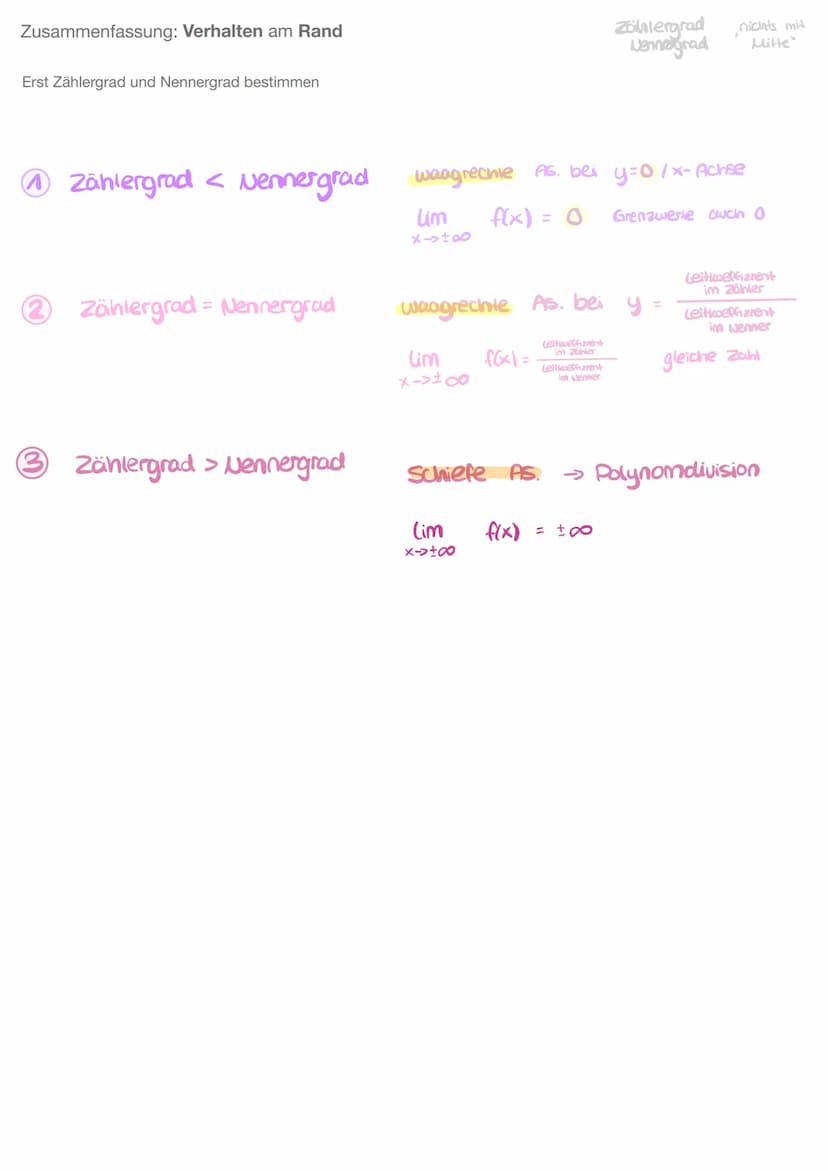 Zusammenfassung: Verhalten am Rand
Zählergrad
Nennergrad
„nichts mit
Mitte“
Erst Zählergrad und Nennergrad bestimmen
① Zählergrad < Nennergrad
waagrechte As. bei y=0 / x-Achse
lim f(x) = 0 Grenzwerte auch 0
x->±∞
② Zählergrad = Nennergrad
waagrechte As. bei y =
Leitkoeffizient
im Zähler
Leitkoeffizient
im Nenner
lim f(x) =
x->±∞
Leitkoeffizient
im Zähler
Leitkoeffizient
im Nenner
gleiche Zahl
③ Zählergrad > Nennergrad
Schiefe As. -> Polynomdivision
lim f(x) = ±∞
x->±∞